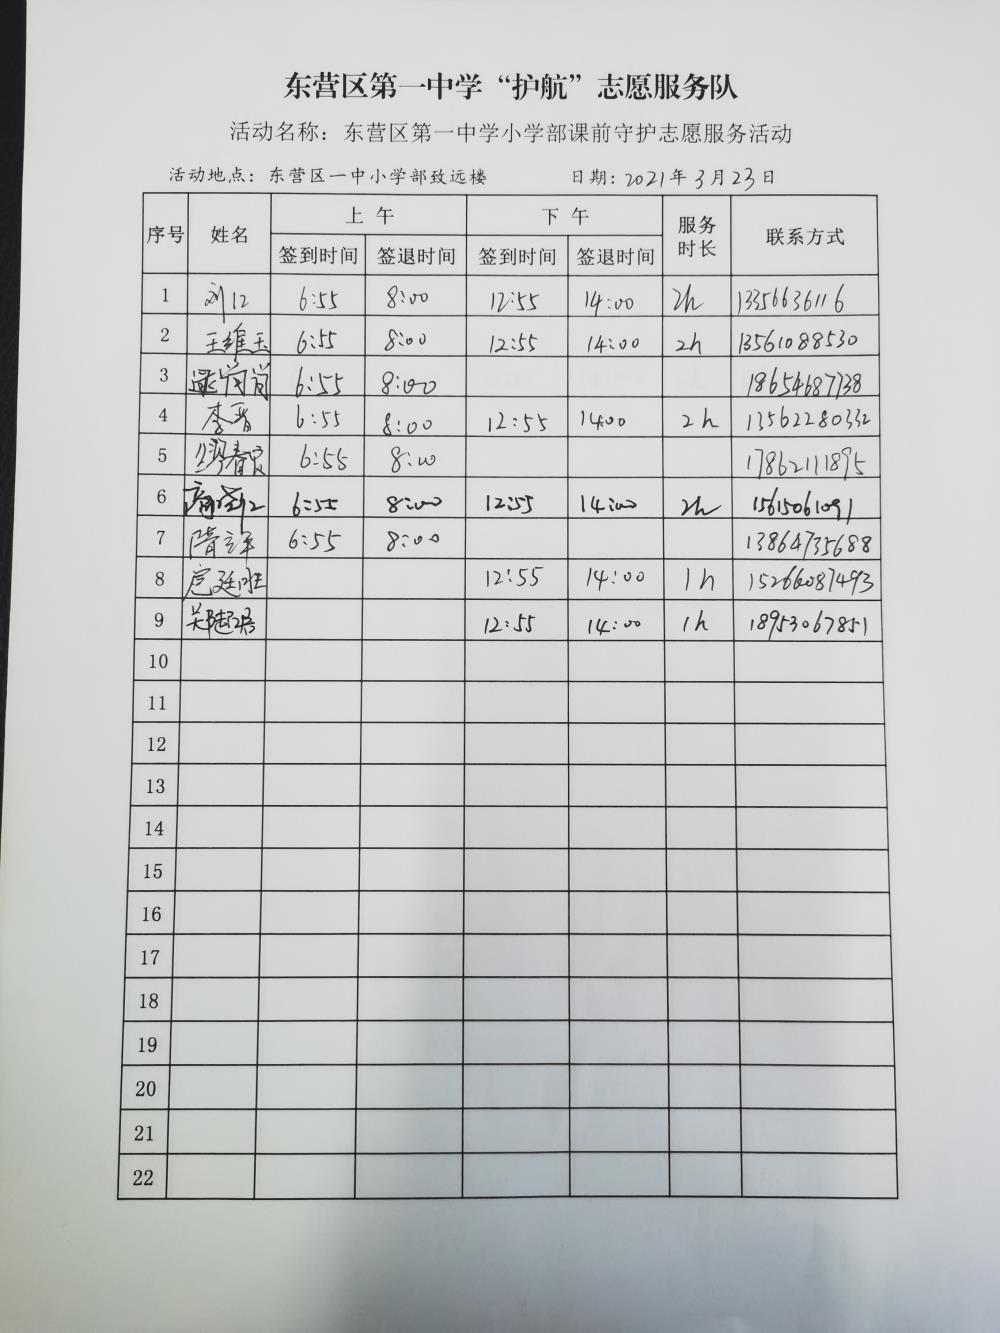 东营区第一中学“护航”志愿服务队
活动名称：东营区第一中学小学部课前守护志愿服务活动
活动地点：东营区一中小学部致远楼 日期：2021年3月23日
序号 姓名 上午 下午 服务时长 联系方式
签到时间 签退时间 签到时间 签退时间
1 刘江 6:55 8:00 12:55 14:00 2h 13356636116
2 王维玉 6:55 8:00 12:55 14:00 2h 13561088530
3 6:55 8:00 18654687738
4 李晋 6:55 8:00 12:55 14:00 2h 13562280332
5 6:55 8:00 17862111895
6 6:55 8:00 12:55 14:00 2h 15615061091
7 6:55 8:00 13864735688
8 12:55 14:00 1h 15266087493
9 12:55 14:00 1h 18953067851
10
11
12
13
14
15
16
17
18
19
20
21
22